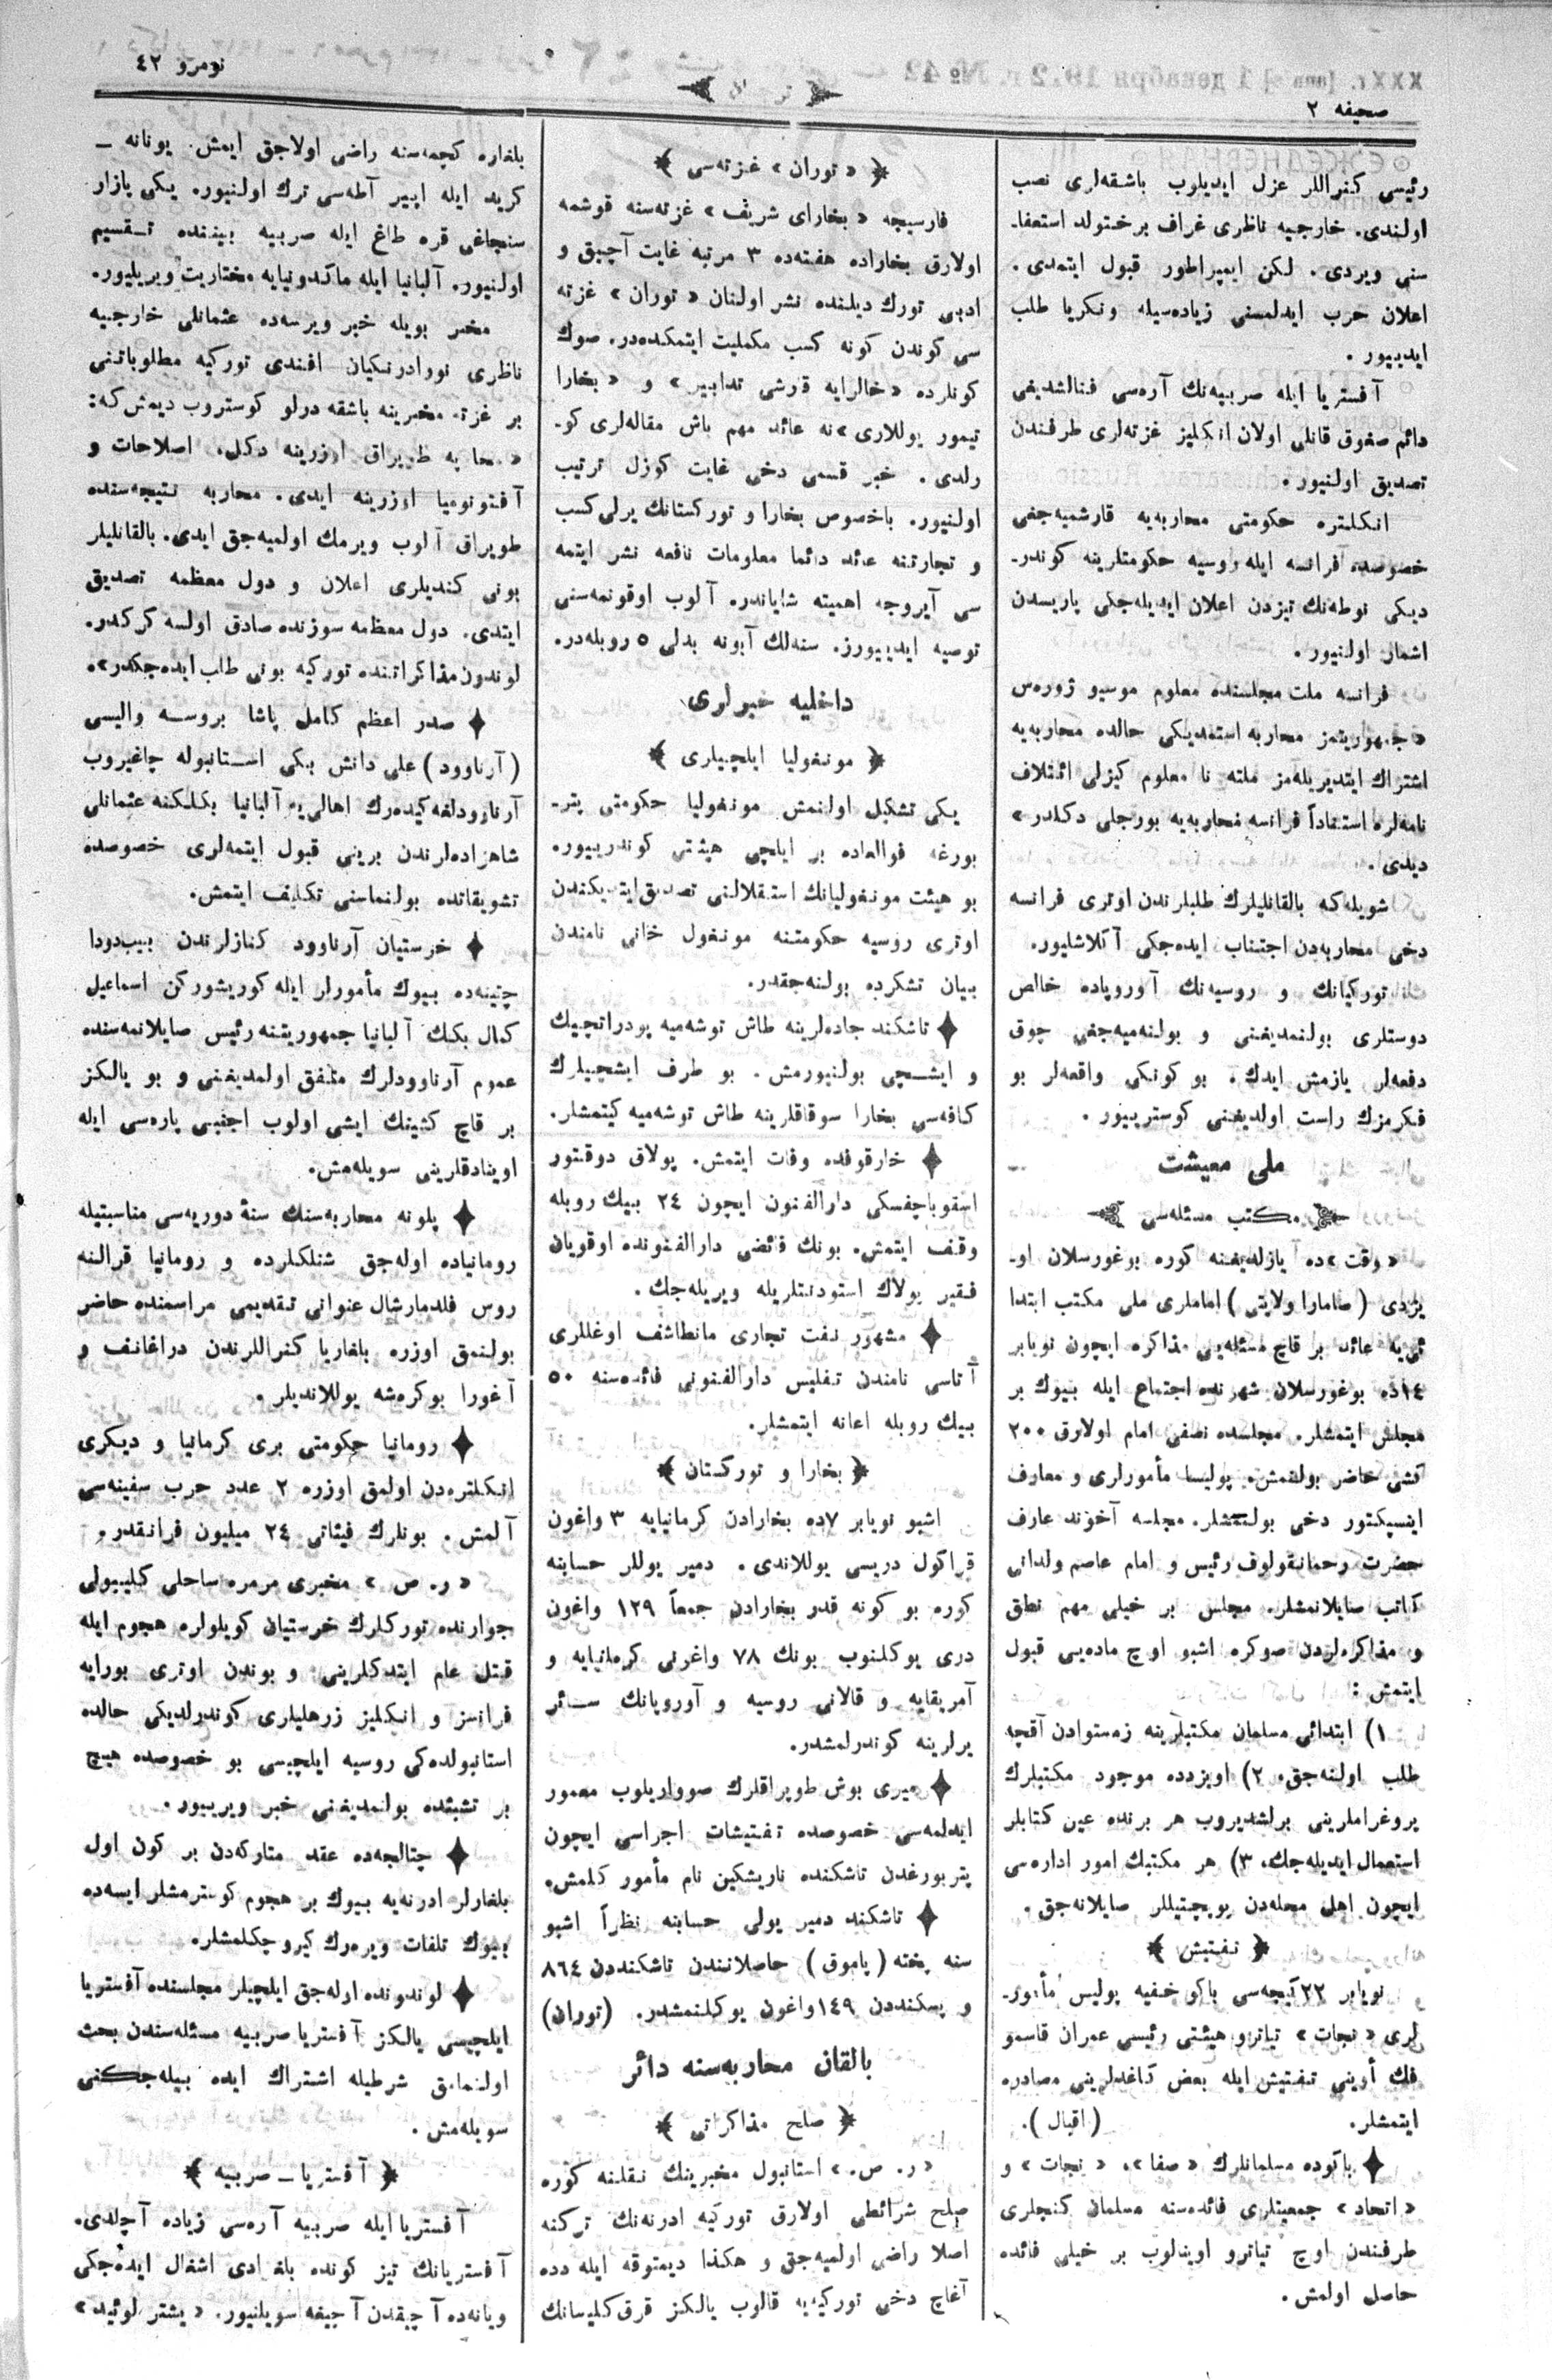 نومرو ٤٢
ترجمان
صحیفه ٢
رئیسی كنراللر عزل ایدیلوب باشقه‌لری نصب
اولندی. خارجیه ناظری غراف برختولد استعفا-
سنی ویردی. لكن ایمپراطور قبول ایتمدی.
اعلان حرب ایدلمسنی زیاده‌سیله ونكریا طلب
ایدییور.
آفستریا ایله صربیه‌نك آره‌سی فنالشدیغی
دائم صغوق قانلی اولان انكلیز غزته‌لری طرفندن
تصدیق اولنیور.
انكلتره حكومتی محاربه‌یه قارشمیه‌جغی
خصوصده فرانسه ایله روسیه حكومتلرینه كوندر-
دیكی نوطه‌نك تیزدن اعلان ایدیله‌جكی پاریسدن
اشعار اولنیور.
فرانسه ملت مجلسنده معلوم موسیو ژوره‌س
«جمهوریتمز محاربه استمدیكی حالده محاربه‌یه
اشتراك ایتدیریله‌مز ملته نا معلوم كیزلی ائتلاف
نامه‌لره استناداً فرانسه محاربه‌یه بورجلی دكلدر»
دیدی.
شویله‌كه بالقانلیلرك طلبلرندن اوتری فرانسه
دخی محاربه‌دن اجتناب ایده‌جكی آكلاشلیور.
توركیانك و روسیه‌نك آوروپاده خالص
دوستلری بولنمدیغنی و بولنه‌میه‌جغی چوق
دفعه‌لر یازمش ایدك. بو كونكی واقعه‌لر بو
فكرمزك راست اولدیغنی كوسترییور.
ملی معیشت
مكتب مسئله‌سی
«وقت»ده یازلدیغنه كوره بوغورسلان او-
یزدی (صامارا ولایتی) اماملری ملی مكتب ابتدا
ئی‌یه عائد بر قاچ مسئله‌یی مذاكره ایچون نویابر
١٤ده بوغورسلان شهرنده اجتماع ایله بیوك بر
مجلس ایتمشلر. مجلسده نصفی امام اولارق ٢٠٠
كشی حاضر بولنمش. پولیسا مأمورلری و معارف
اینسپكتور دخی بولنمشلر. مجلسه آخوند عارف
حضرت رحمانقولوف رئیس و امام عاصم ولدانی
كاتب صایلانمشلر. مجلس بر خیلی مهم نطق
و مذاكره‌لردن صوكره اشبو اوچ ماده‌یی قبول
ایتمش:
١) ابتدائی مسلمان مكتبلرینه زمستوادن آقچه
طلب اولنه‌جق. ٢) اویزدده موجود مكتبلرك
پروغراملرینی برلشدیروب هر برنده عین كتابلر
استعمال ایدیله‌جك، ٣) هر مكتبك امور اداره‌سی
ایچون اهل محله‌دن پوپچیتیللر صایلانه‌جق.
تفتیش
نویابر ٢٢ كیجه‌سی باكو خفیه پولیس مأمور-
لری «نجات» تیاترو هیئتی رئیسی عمران قاسمو
فك أوینی تفتیش ایله بعض كاغدلرینی مصادره
ایتمشلر. (اقبال).
باكوده مسلمانلرك «صفا»، «نجات» و
«اتحاد» جمعیتلری فائده‌سنه مسلمان كنجلری
طرفندن اوچ تیاترو اوینلوب بر خیلی فائده
حاصل اولمش.
«توران» غزته‌سی
فارسیجه «بخارای شریف» غزته‌سنه قوشمه
اولارق بخاراده هفته‌ده ٣ مرتبه غایت آچیق و
ادبی تورك دیلنده نشر اولنان «توران» غزته
سی كوندن كونه كسب مكملیت ایتمكده‌در. صوك
كونلرده «خالرایه قارشی تدابیر» و «بخارا
تیمور یوللاری»نه عائد مهم باش مقاله‌لری كو-
رلدی. خبر قسمی دخی غایت كوزل ترتیب
اولنیور. باخصوص بخارا و توركستانك یرلی كسب
و تجارتنه عائد دائما معلومات نافعه نشر ایتمه
سی آیروجه اهمیته شایاندر. آلوب اوقونمه‌سنی
توصیه ایدییورز. سنه‌لك آبونه بدلی ٥ روبله‌در.
داخلیه خبرلری
مونغولیا ایلچیلری
یكی تشكیل اولنمش مونغولیا حكومتی پتر-
بورغه فوالعاده بر ایلچی هیئتی كوندرییور.
بو هیئت مونغولیانك استقلالنی تصدیق ایتدیكندن
اوتری روسیه حكومتنه مونغول خانی نامندن
بیان تشكرده بولنه‌جقدر.
تاشكند جاده‌لرینه طاش توشه‌میه پودراتچیك
و ایشچی بولنیورمش. بو طرف ایشچیلرك
كافه‌سی بخارا سوقاقلرینه طاش توشه‌میه كیتمشلر.
خارقوفده وفات ایتمش. پولاق دوقتور
اسقوباچفسكی دارالفنون ایچون ٢٤ بیك روبله
وقف ایتمش. بونك فائضی دارالفنونده اوقویان
فقیر پولاك استودنتلریله ویریله‌جك.
مشهور نفت تجاری مانطاشف اوغللری
آتاسی نامندن تفلیس دارالفنونی فائده‌سنه ٥٠
بیك روبله اعانه ایتمشلر.
بخارا و توركستان
اشبو نویابر ٧ده بخارادن كرمانیایه ٣ واغون
قراكول دریسی یوللاندی. دمیر یوللر حسابنه
كوره بو كونه قدر بخارادن جمعاً ١٢٩ واغون
دری یوكلنوب بونك ٧٨ واغونی كرمانیایه و
آمریقایه و قالانی روسیه و آوروپانك سائر
یرلرینه كوندرلمشدر.
میری بوش طوپراقلرك صوواریلوب معمور
ایدلمه‌سی خصوصده تفتیشات اجراسی ایچون
پتربورغدن تاشكنده ناریشكین نام مأمور كلمش.
تاشكند دمیر یولی حسابنه نظراً اشبو
سنه پخته (پاموق) حاصلاتندن تاشكنددن ٨٦٤
و پسكنددن ١٤٩ واغون یوكلنمشدر. (توران)
بالقان محاربه‌سنه دائر
صلح مذاكراتی
«ر. ص.» استانبول مخبرینك نقلنه كوره
صلح شرائطی اولارق توركیه ادرنه‌نك تركنه
اصلا راضی اولمیه‌جق و هكذا دیمتوقه ایله دده
آغاچ دخی توركیه‌یه قالوب یالكز قرق كلیسانك
بلغاره كچمه‌سنه راضی اولاجق ایمش. یونانه –
كرید ایله ایپیر آطه‌سی ترك اولنیور. یكی پازار
سنجاغی قره طاغ ایله صربیه بیننده تقسیم
اولنیور. آلبانیا ایله ماكدونیایه مختاریت ویریلیور.
مخبر بویله خبر ویرسه‌ده عثمانلی خارجیه
ناظری نورادرنكیان افندی توركیه مطلوباتنی
بر غزته مخبرینه باشقه درلو كوستروب دیمش‌كه:
«محاربه طوپراق اوزرینه دكل، اصلاحات و
آفتونومیا اوزرینه ایدی. محاربه نتیجه‌سنده
طوپراق آلوب ویرمك اولمیه‌جق ایدی. بالقانلیلر
بونی كندیلری اعلان و دول معظمه تصدیق
ایتدی. دول معظمه سوزنده صادق اولسه كركدر.
لوندون مذاكراتنده توركیه بونی طلب ایده‌جكدر».
صدر اعظم كامل پاشا بروسه والیسی
(آرناوود) علی دانش بیكی استانبوله چاغیروب
آرناوودلغه كیده‌رك اهالی‌یه آلبانیا بكلكنه عثمانلی
شاهزاده‌لرندن برینی قبول ایتمه‌لری خصوصده
تشویقاتده بولنماسنی تكلیف ایتمش.
خرستیان آرناوود كنازلرندن بیب‌دودا
چتینه‌ده بیوك مأمورلر ایله كوریشوركن اسماعیل
كمال بكك آلبانیا جمهوریتنه رئیس صایلانمه‌سنده
عموم آرناوودلرك متفق اولمدیغنی و بو یالكز
بر قاچ كشینك ایشی اولوب اجنبی پاره‌سی ایله
اوینادقلرینی سویله‌مش.
پلونه محاربه‌سنك سنهٔ دوریه‌سی مناسبتیله
رومانیاده اوله‌جق شنلكلرده و رومانیا قرالنه
روس فلدمارشال عنوانی تقدیمی مراسمنده حاضر
بولنمق اوزره بلغاریا كنراللرندن دراغانف و
آغورا بوكره‌شه یوللاندیلر.
رومانیا حكومتی بری كرمانیا و دیكری
انكلتره‌دن اولمق اوزره ٢ عدد حرب سفینه‌سی
آلمش. بونلرك فیئاتی ٢٤ میلیون فرانقدر.
«ر. ص» مخبری مرمره ساحلی كلیبولی
جوارنده توركلرك خرستیان كویلولره هجوم ایله
قتل عام ایتدكلرینی و بوندن اوتری بورایه
فرانسز و انكلیز زرهلیلری كوندرلدیكی حالده
استانبولده‌كی روسیه ایلچیسی بو خصوصده هیچ
بر تشبثده بولنمدیغنی خبر ویرییور.
چتالجه‌ده عقد متاركه‌دن بر كون اول
بلغارلر ادرنه‌یه بیوك بر هجوم كوسترمشلر ایسه‌ده
بیوك تلفات ویره‌رك كیرو چكلمشلر.
لوندونده اوله‌جق ایلچیلر مجلسنده آفستریا
ایلچیسی یالكز آفستریا صربیه مسئله‌سندن بحث
اولنمامق شرطیله اشتراك ایده بیله‌جكنی
سویله‌مش.
آفستریا – صربیه
آفستریا ایله صربیه آره‌سی زیاده آچلدی.
آفستریانك تیز كونده بلغرادی اشغال ایده‌جكی
ویانه‌ده آچیقدن آچیغه سویلنیور. «پشتر لوئید»